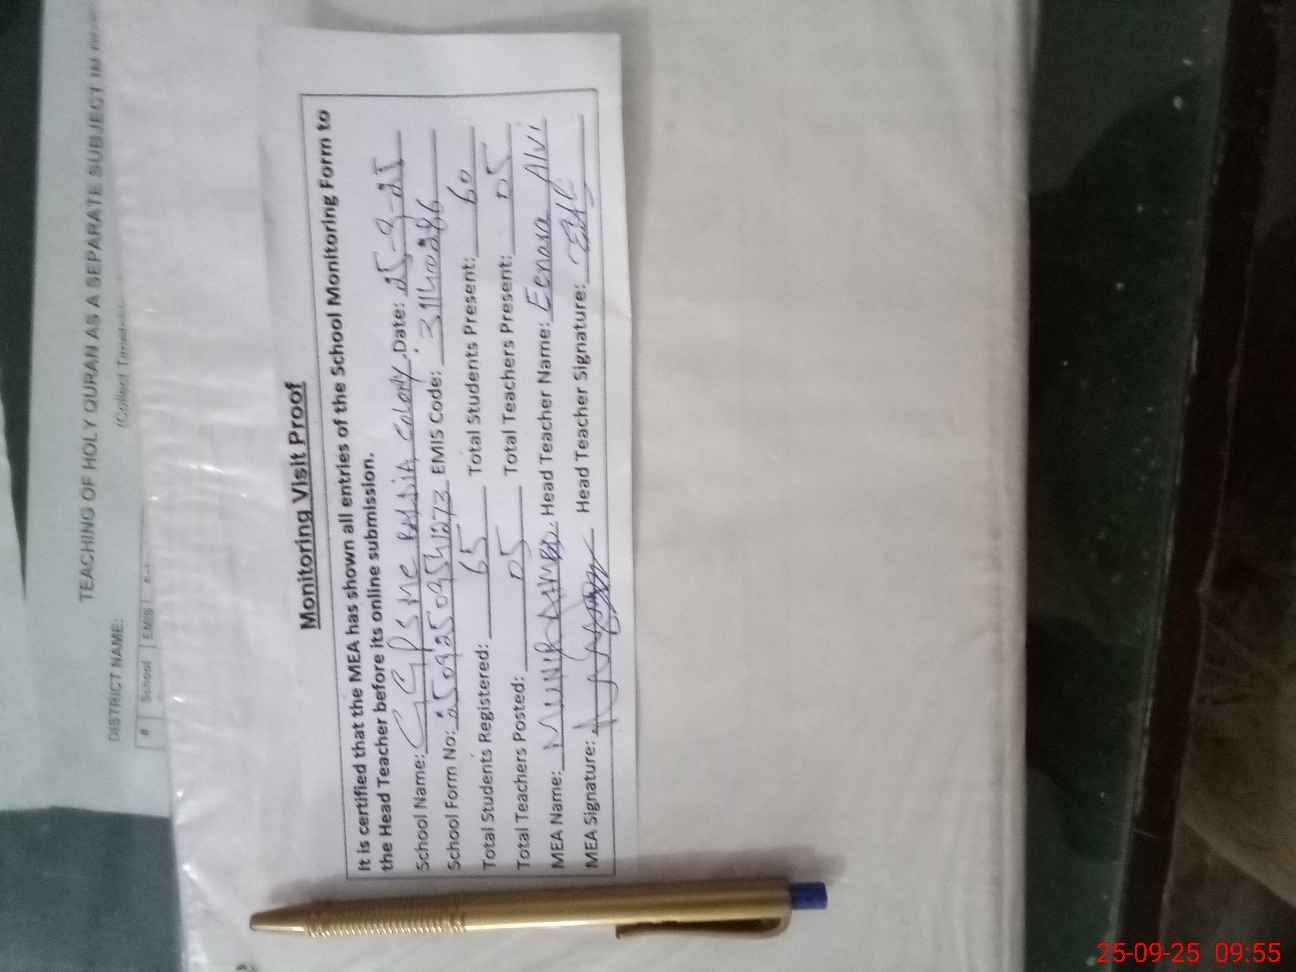 TEACHING OF HOLY QURAN AS A SEPARATE SUBJECT IN
(Collect Time
DISTRICT NAME:
# School EMIS
Monitoring Visit Proof
It is certified that the MEA has shown all entries of the School Monitoring Form to
the Head Teacher before its online submission.
School Name: GGPS MC Colony Date: 25-9-25
School Form No: EMIS Code: 31140286
Total Students Registered: 65 Total Students Present: 60
Total Teachers Posted: 05 Total Teachers Present: 05
MEA Name: MUNIR AHMAD Head Teacher Name: Alvi
MEA Signature: Head Teacher Signature:
25-09-25 09:55